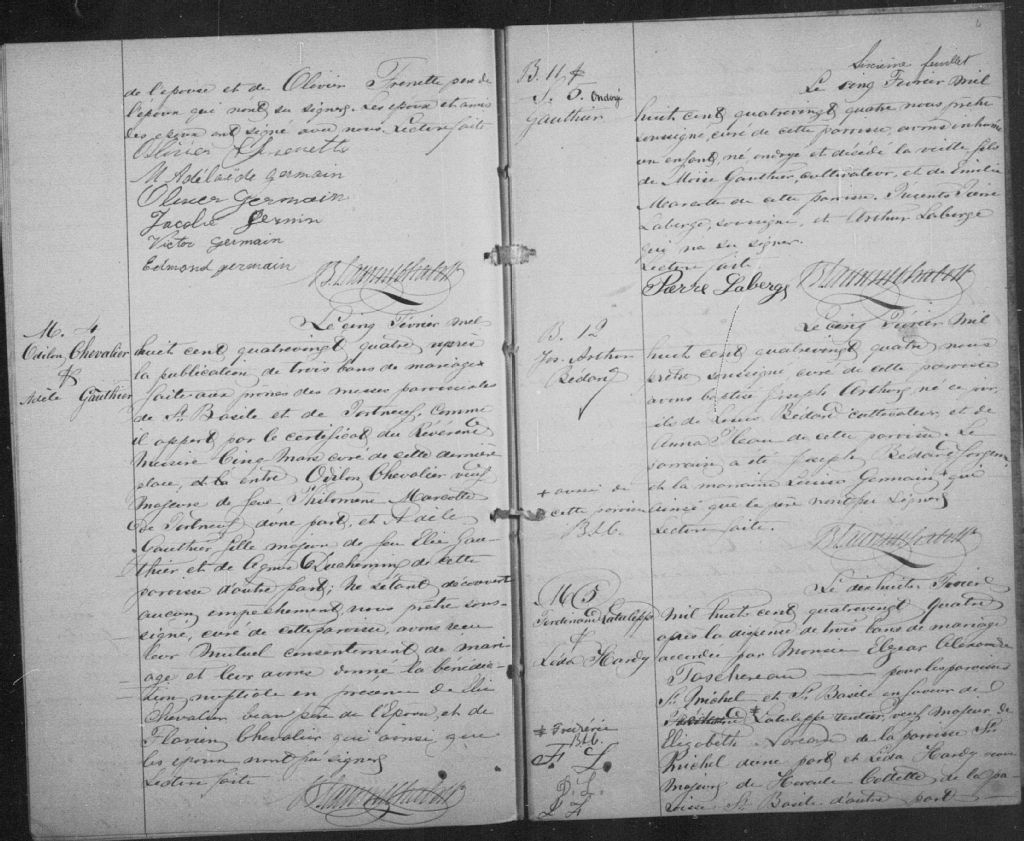 de l'epouse et de Olivier Frenette pere de
l'epoux qui n'ont su signer. Les epoux et amis
des epoux ont signé avec nous. Lecture faite
Olivier Frenette
M Adélaïde germain
Olivier Germain
Jacobe Germin
Victor germain
Edmond germain
M. 4
Odilon Chevalier
&
Adèle Gauthier
Le cinq Février mil
huit cent quatrevingt quatre apres
la publication de trois bans de mariage
faite aux prônes des messes paroissiales
de St Basile et de Portneuf, comme
il appert par le certificat du Révérend
Messire Cinq Mars curé de cette derniere
place, et la entre Odilon Chevalier veuf
majeure de feue Philomene Marcotte
de Portneuf d'une part, et Adèle
Gauthier fille majeure de feu Elie Gau-
thier et de Agnes Duchesning de cette
paroisse d'autre part; ne s'etant découvert
aucun empechement nous prêtre sous-
signé, curé de cette paroisse, avons recu
leur mutuel consentement de mari-
age et leur avons donné la bénédic-
tion nuptiale en presence de Elie
Chevalier beau pere de l'Epoux, et de
Flavien Chevalier qui ainsi que
les epoux n'ont su signer
Lecture faite
6
Sixieme feuillet
B. 11 &
S. 5. Ondoyé
Gauthier
Le cinq Février mil
huit cent quatrevingt quatre nous prêtre
soussigné, curé de cette paroisse, avons inhumé
un enfant, né, ondoyé et décédé la veille, fils
de Moïse Gauthier, cultivateur, et de Emilie
Marcotte de cette paroisse. Presents Pierre
Laberge, soussigné, et Arthur Laberge
qui n'a su signer.
Lecture faite
Pierre Laberge
B. 12
Jos. Arthur
Bédard
Le cinq Février mil
huit cent quatrevingt quatre nous
prêtre soussigné curé de cette paroisse
avons baptisé Joseph Arthur, né ce jour,
fils de Louis Bédard cultivateur, et de
Anna Pleau de cette paroisse. Le
parrain a été Joseph Bédard
et la marraine Louisa Germain, qui
ainsi que le père n'ont su signer
Lecture faite.
+ aussi de
cette paroisse
B L G.
M 5
Ferdinand Latulippe
&
Léda Hardy
Le dix huit Fevrier
mil huit cent quatrevingt quatre
après la dispense de trois bans de mariage
accordée par Monsieur Elzear Alexandre
Taschereau pour les paroisses
St. Michel et St. Basile en faveur de
Latulippe rentier, veuf majeur de
Elizabeth de la paroisse St.
Michel d'une part et Léda Hardy veuve
majeure de Hercule Collette, de la pa-
roisse St. Basile d'autre part
* Frédéric
B L G.
F. L.
D. L.